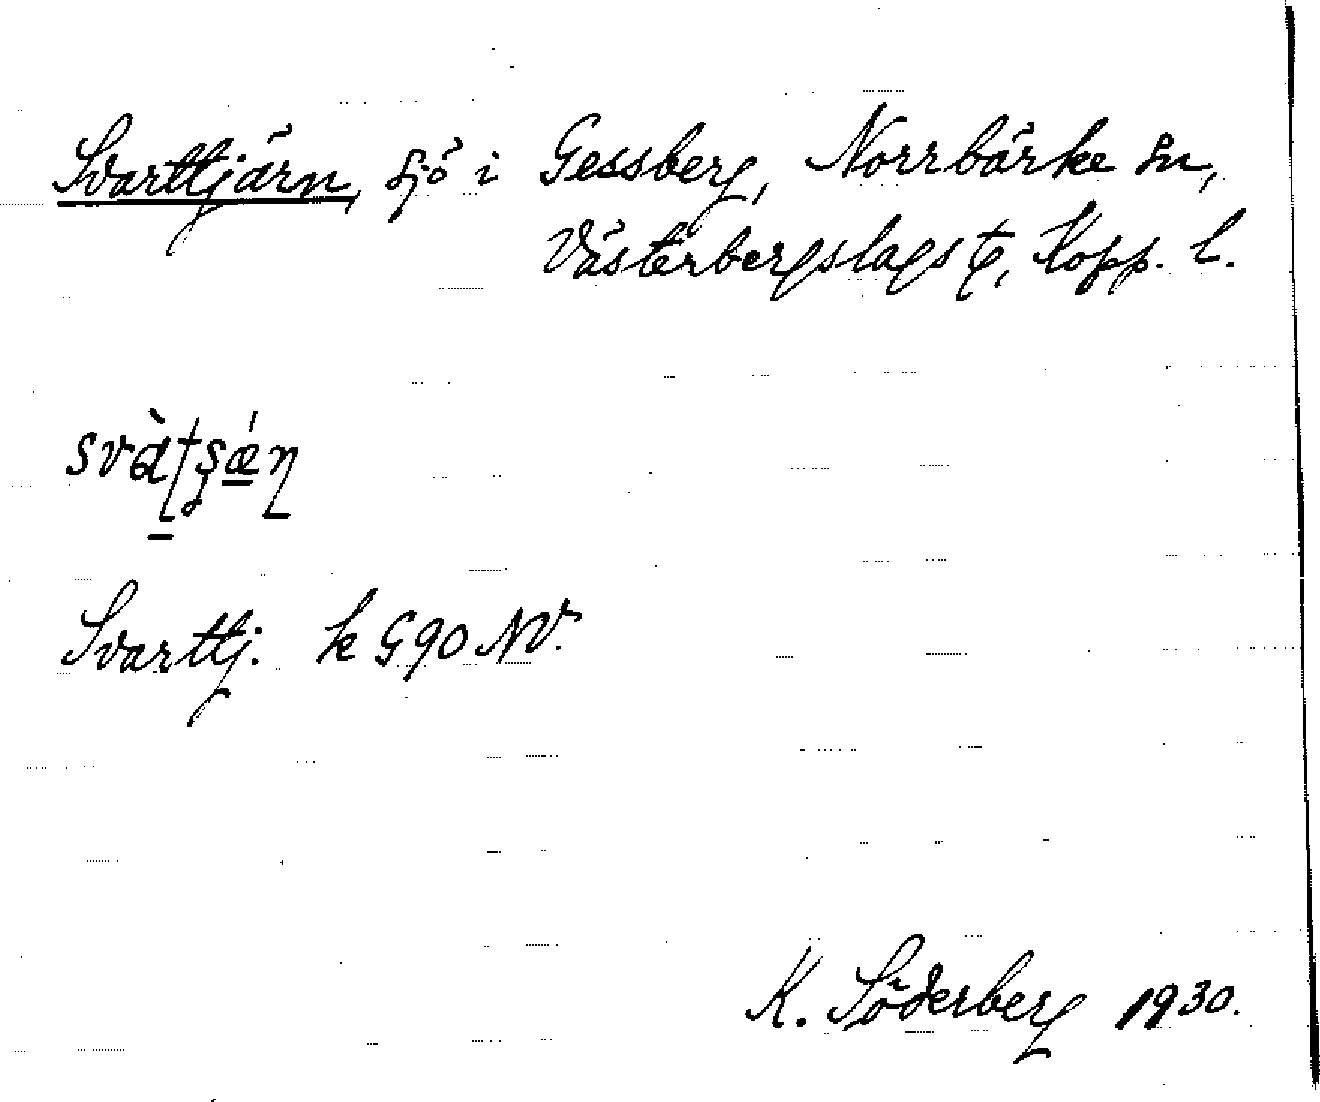 Svarttjärn, sjö i Gessberg, Norrbärke sn,
Västerbergslags t, Kopp. l.
svàʈʂǽɳ
Svarttj. k G90 NV.
K. Söderberg 1930.